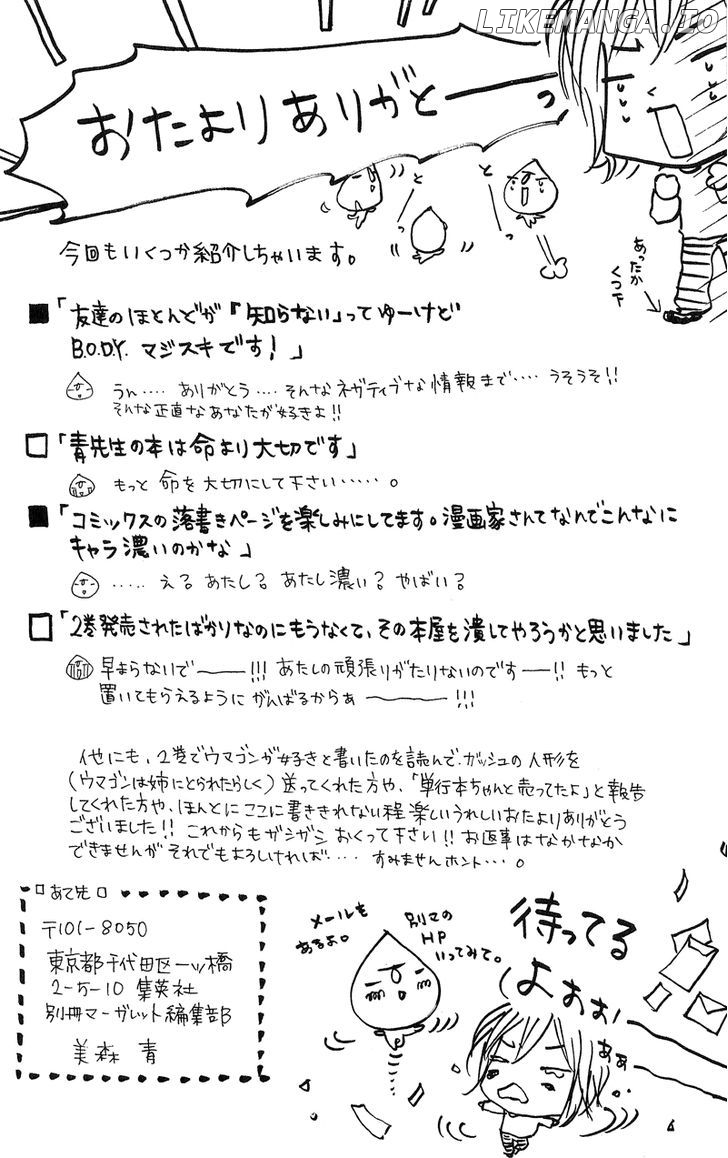 LIKEMANGA.IO
おたよりありがとーーっ
とーっ
とーっ
あったか
くつ下
今回もいくつか紹介しちゃいます。
■「友達のほとんどが『知らない』ってゆーけど
B.O.D.Y. マジスキです!」
うん‥‥ ありがとう‥‥そんなネガティブな情報まで‥‥うそうそ!!
そんな正直なあなたが好きよ!!
□「青先生の本は命より大切です」
もっと 命を大切にして下さい‥‥‥。
■「コミックスの落書きページを楽しみにしてます。漫画家さんてなんでこんなに
キャラ濃いのかな」
‥‥‥え?あたし?あたし濃い?やばい?
□「2巻発売されたばかりなのにもうなくて、その本屋を潰してやろうかと思いました」
早まらないで――!!! あたしの頑張りがたりないのです―!! もっと
置いてもらえるように がんばるからぁ ――!!!
他にも、2巻でウマゴンが好きと書いたのを読んで、ガッシュの人形を
(ウマゴンは姉にとられたらしく)送ってくれた方や、「単行本ちゃんと売ってたよ」と報告
してくれた方や、ほんとにここに書ききれない程 楽しいうれしいおたよりありがとう
ございました!! これからもガシガシ おくって下さい!! お返事はなかなか
できませんが それでもよろしければ‥‥ すみませんホント‥‥。
□あて先□
〒101-8050
東京都千代田区一ツ橋
2-5-10 集英社
別冊マーガレット編集部
美森 青
メールも
あるよ。
別マの
HP
いってみて。
待ってる
よぉぉぉ
ぁぁ